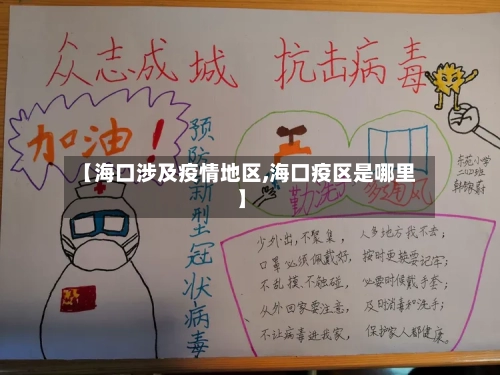 众志成城 抗击病毒
加油！
预防新型冠状病毒
【海口涉及疫情地区,海口疫区是哪里
】
勤洗
多通风
东苑小学
少外出,不聚集,
口罩必须佩戴好,
不乱摸、不触碰,
从外回家要注意,
不让病毒进我家,
人多地方我不去;
按时更换要记牢;
必要时候戴手套;
及时消毒和洗手;
保护家人都健康。